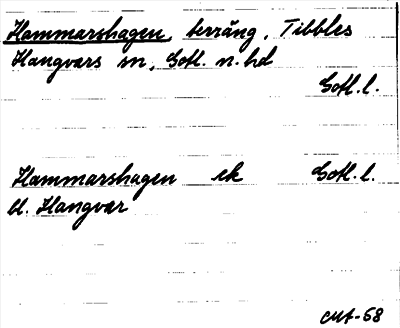 Hammarshagen, terräng, Tibbles
Hangvars sn, Gotl. n. hd
Gotl. l.
Hammarshagen ek Gotl. l.
bl. Hangvar
CMA-68